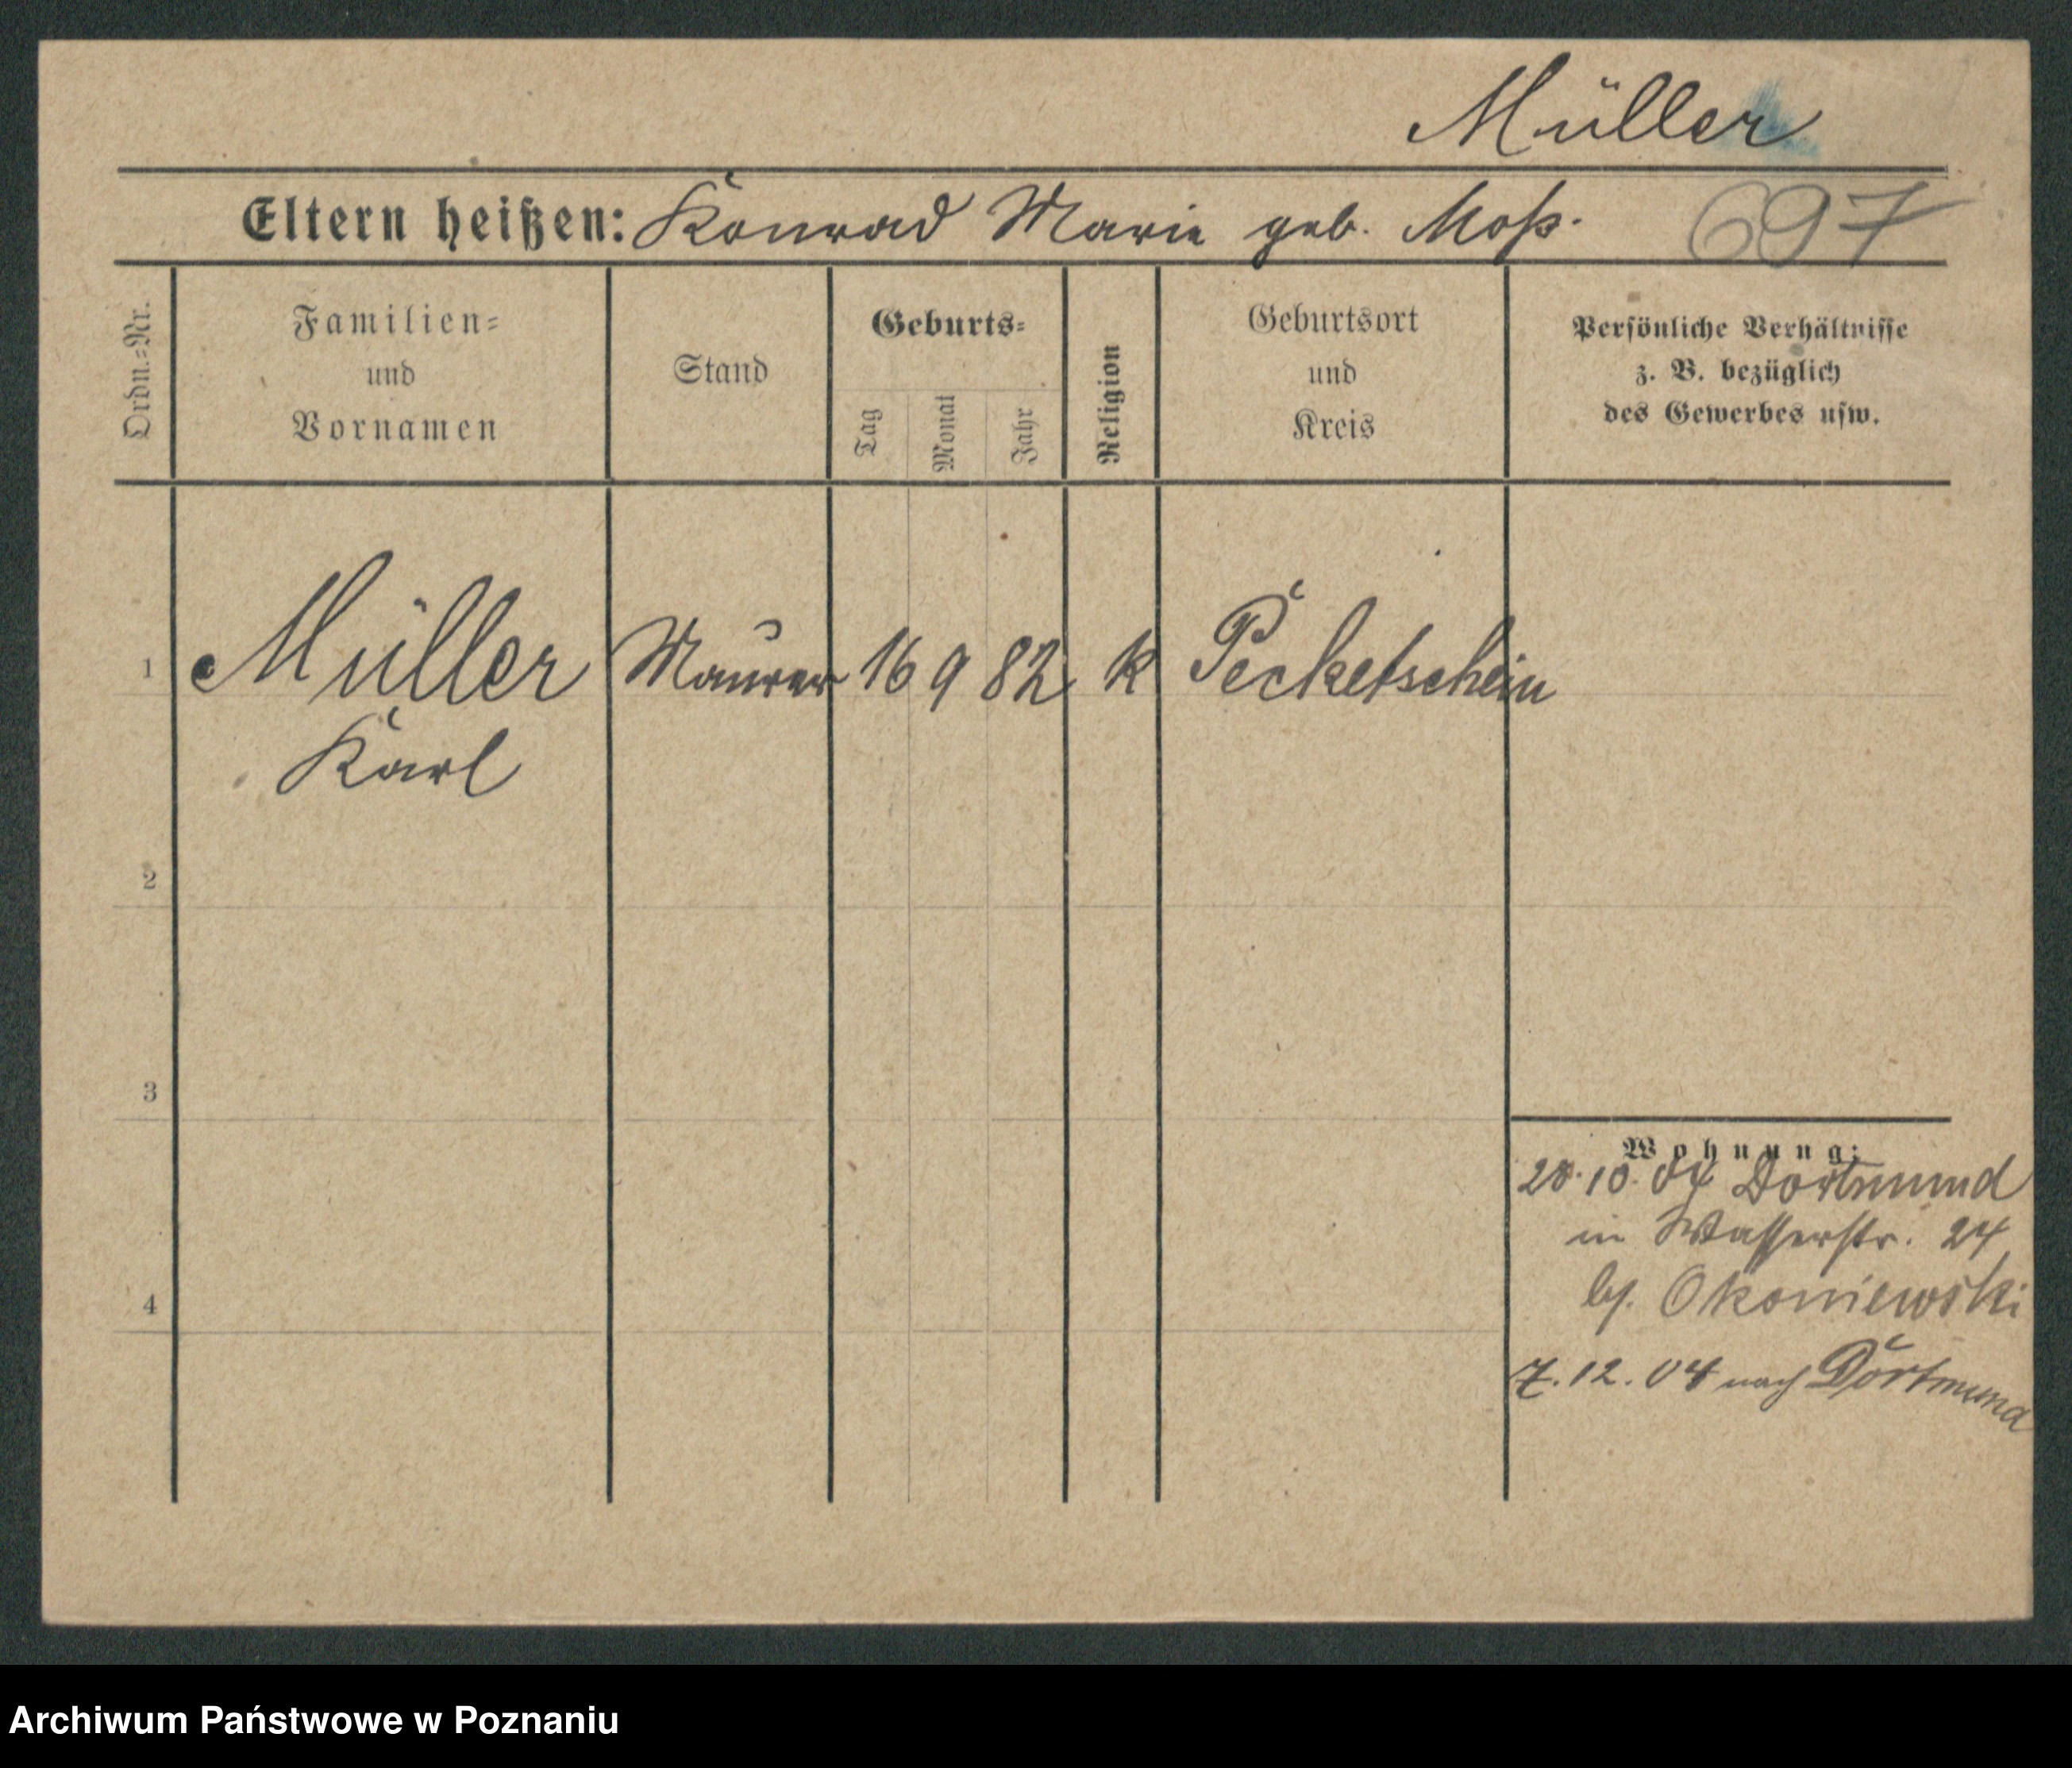 Müller
Eltern heißen: Konrad Marie geb. Moß. 697
Ordn.=Nr.
Familien=
und
Vornamen
Stand
Geburts=
Tag
Monat
Jahr
Religion
Geburtsort
und
Kreis
Persönliche Verhältnisse
z. B. bezüglich
des Gewerbes usw.
1 Müller Maurer 16 9 82 k Pecketschein
Karl
2
3
4
Wohnung:
28.10.04 Dortmund
in Wasserstr. 24
by. Okoniewski
7.12.04 nach Dortmund
Archiwum Państwowe w Poznaniu